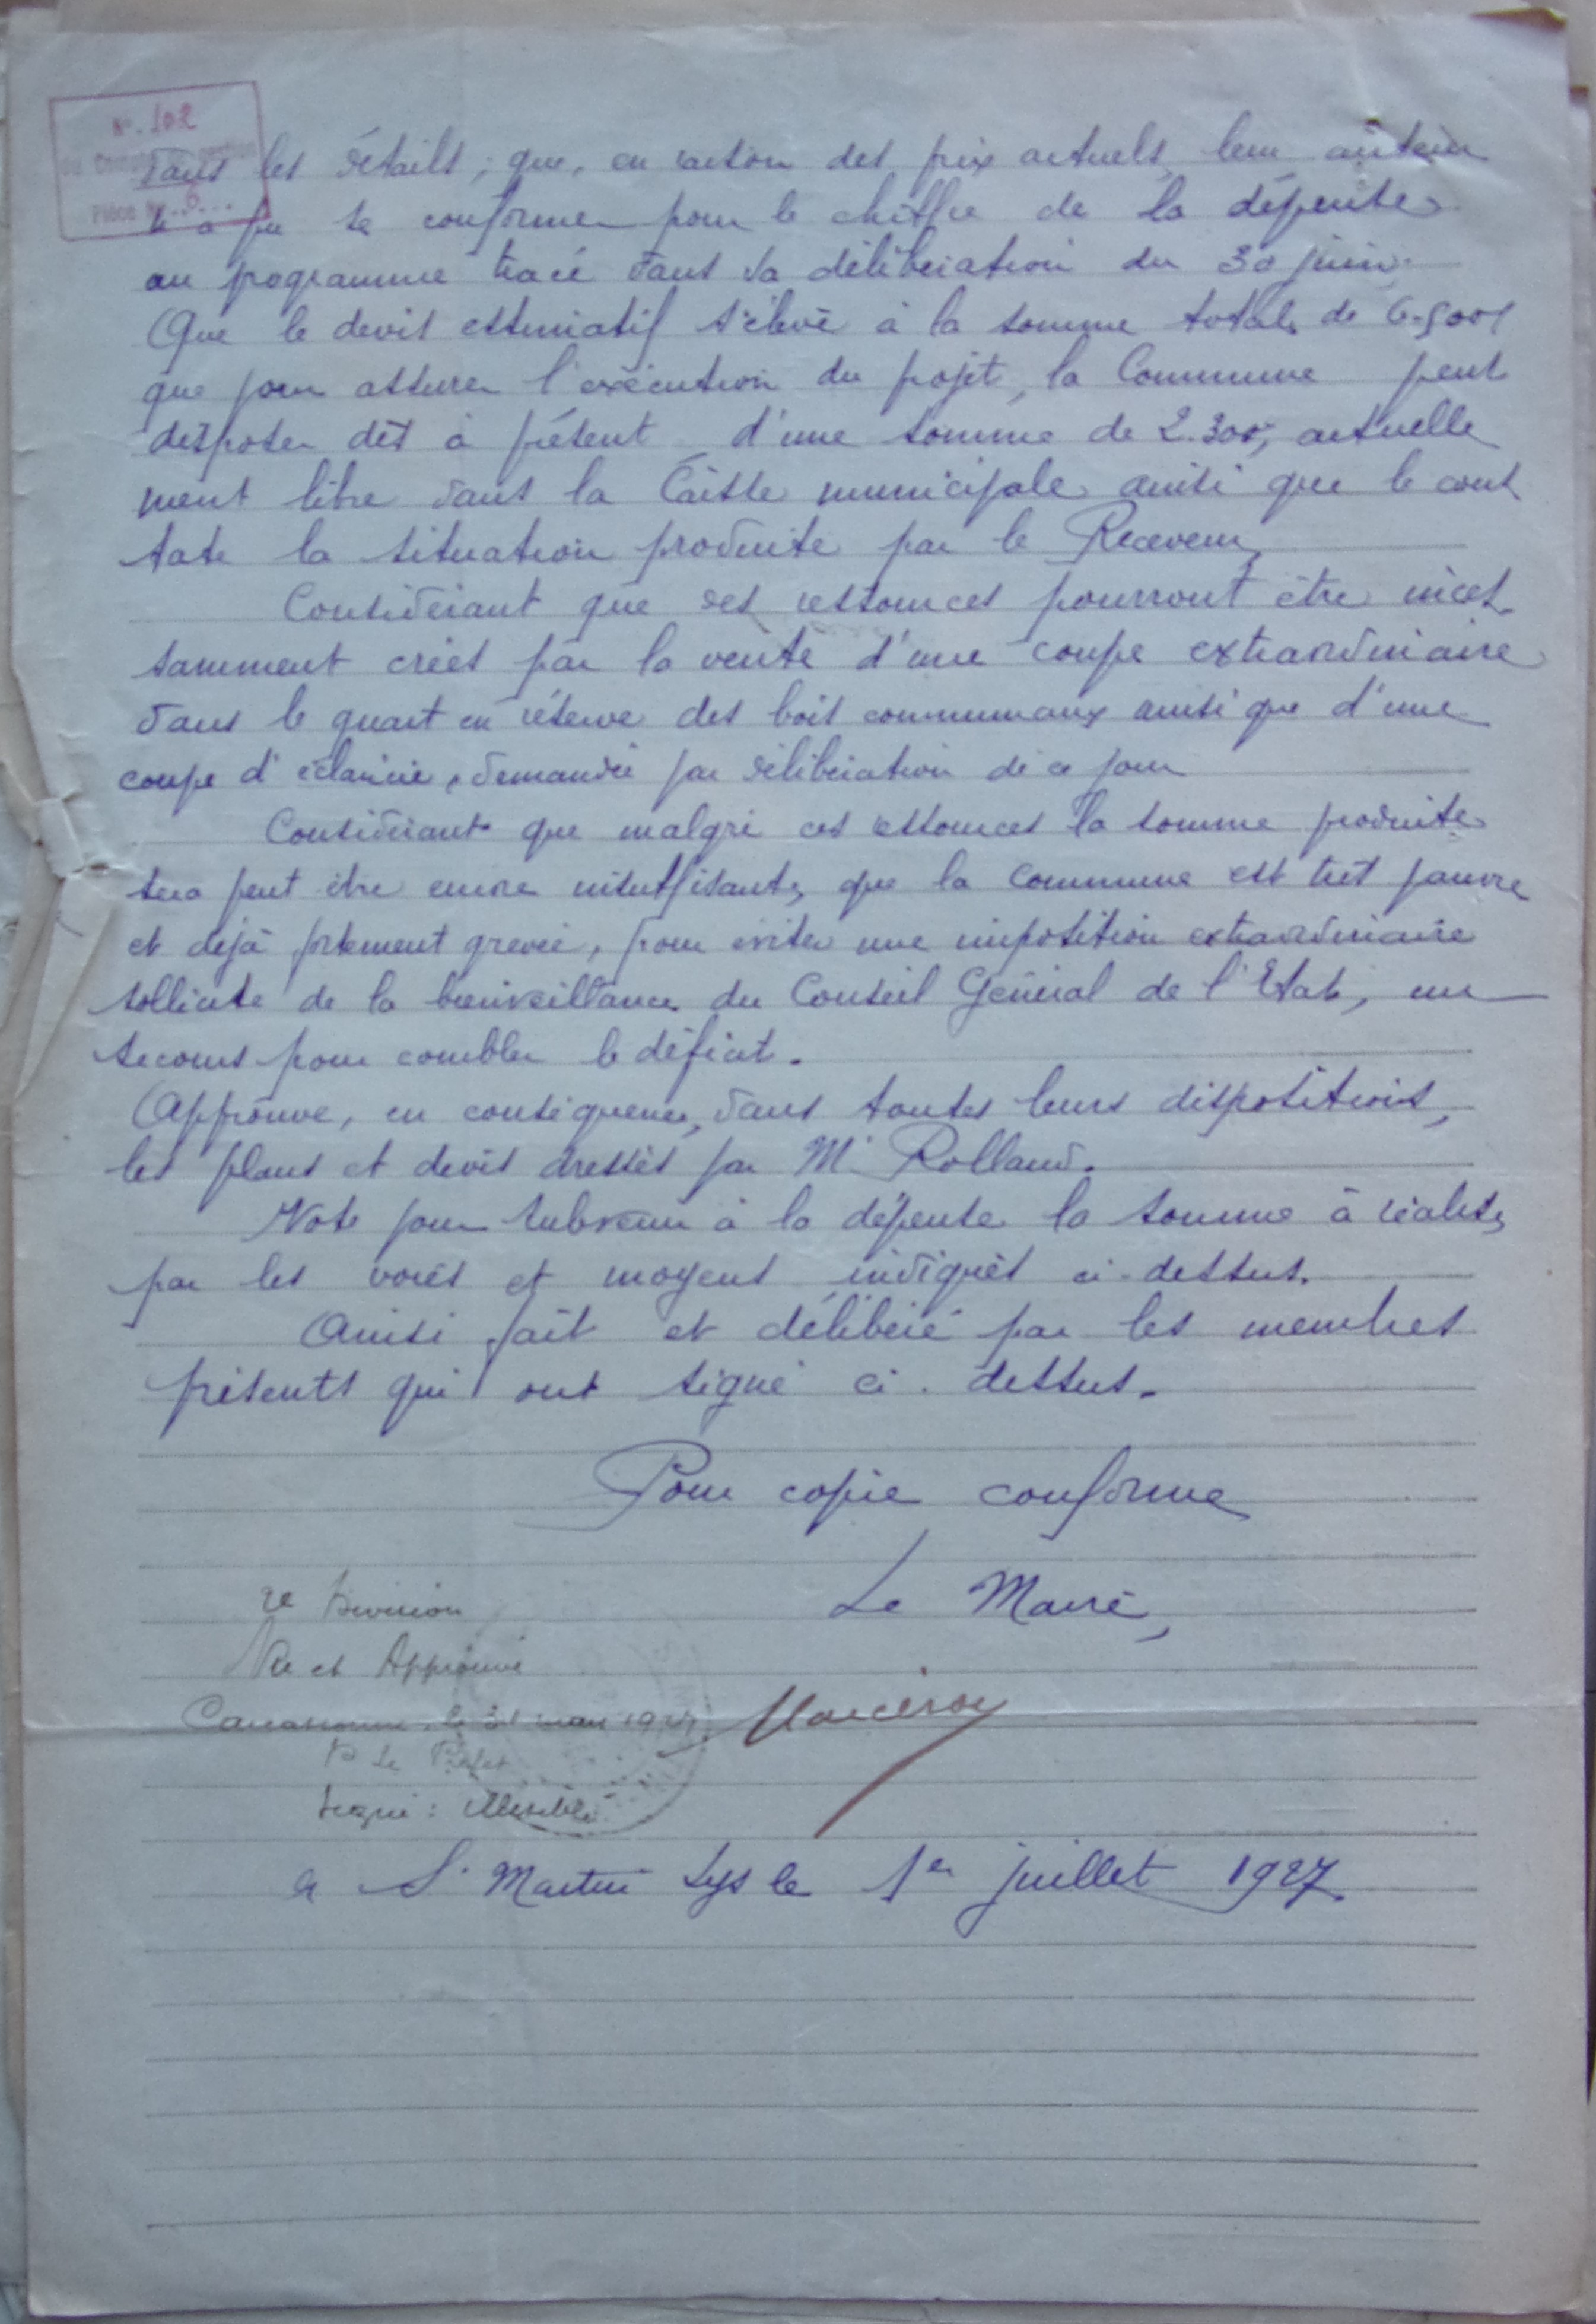 N°. 102
Pièce N°..6...
dans les détails, que, en raison des prix actuels, leur auteur
n'a pu se conformer pour le chiffre de la dépense
au programme tracé dans sa délibération du 30 juin.
Que le devis estimatif s'élève à la somme totale de 6.500f
que pour assurer l'exécution du projet, la Commune peut
disposer dès à présent d'une somme de 2.300f, actuelle
ment libre dans la Caisse municipale ainsi que le cons
tate la situation produite par le Receveur,
Considérant que des ressources pourront être inces
samment créés par la vente d'une coupe extraordinaire
dans le quart en réserve des bois communaux ainsi que d'une
coupe d'éclaircie, demandée par délibération de ce jour
Considérant que malgré ces ressources la somme produite
sera peut être encore insuffisante, que la commune est très pauvre
et déjà fortement grevée, pour éviter une imposition extraordinaire
sollicite de la bienveillance du Conseil Général de l'Etat, un
secours pour combler le déficit.
Approuve, en conséquence, dans toutes leurs dispositions,
les plans et devis dressés par Mr Rolland.
Vote pour subvenir à la dépense la somme à réaliser
par les voies et moyens indiqués ci-dessus.
Ainsi fait et délibéré par les membres
présents qui ont signé ci-dessus.
Pour copie conforme
Le Maire,
2e Division
Vu et Approuvé
Carcassonne, le 31 mars 1927
P Le Préfet
Signé: Illisible
a St Martin Lys le 1er juillet 1927